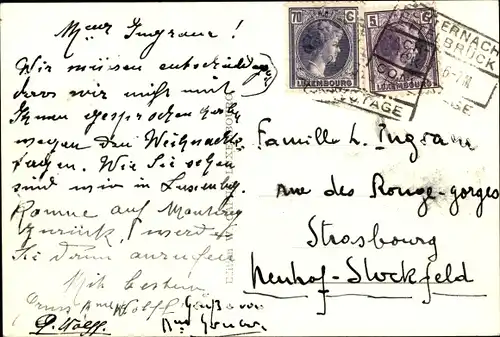 Mr Ingrane !
Wir müssen entschuldigen
dass wir nicht mit
Ihnen gesprochen haben
wegen den Weihnachts
tagen. Wie Sie sehen
sind wir in Luxemburg
Komme auf Montag
zurück, werde
Sie dann anrufen
Mit besten
Gruss Wolff
P. Wolff
Grüße von
70 C
LUXEMBOURG
5 C
LUXEMBOURG
Famille L. Ingrane
rue des Rouge-gorges
Strasbourg
Neuhof-Stockfeld